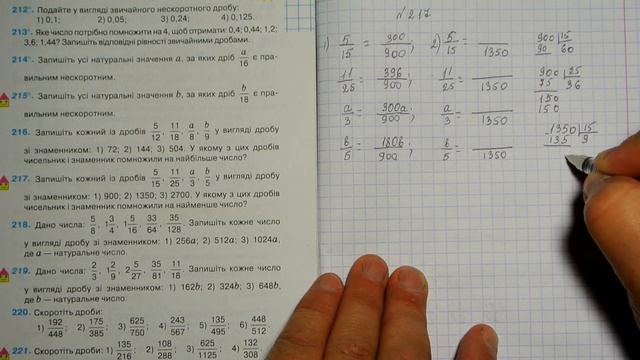 212° Подайте у вигляді звичайного нескоротного дробу:
1) 0,1; 2) 0,05; 3) 0,24; 4) 0,125.
213° Яке число потрібно помножити на 4, щоб отримати: 0,4; 0,44; 1,2;
3,6; 1,44? Запишіть відповідні рівності звичайними дробами.
214° Запишіть усі натуральні значення a, за яких дріб a/16 є пра-
вильним нескоротним.
215° Запишіть усі натуральні значення b, за яких дріб b/18 є пра-
вильним нескоротним.
216. Запишіть кожний із дробів 5/12, 11/18, a/8, b/9 у вигляді дробу
зі знаменником: 1) 72; 2) 144; 3) 504. У якому з цих дробів
чисельник і знаменник помножили на найбільше число?
217. Запишіть кожний із дробів 5/15, 11/25, a/3, b/5 у вигляді дробу
зі знаменником: 1) 900; 2) 1350; 3) 2700. У якому з цих дробів
чисельник і знаменник помножили на найменше число?
218. Дано числа: 5/8, 1 3/4, 1 5/16, 33/64, 35/128. Запишіть кожне число
у вигляді дробу зі знаменником: 1) 256a; 2) 512a; 3) 1024a,
де a — натуральне число.
219. Дано числа: 2/3, 1 2/9, 2 5/27, 35/81, 11/18. Запишіть кожне число
у вигляді дробу зі знаменником: 1) 162b; 2) 324b; 3) 648b,
де b — натуральне число.
220. Скоротіть дроби:
1) 192/448; 2) 175/385; 3) 625/750; 4) 243/567; 5) 135/495; 6) 448/512.
221. Скоротіть дроби: 1) 135/216; 2) 108/288; 3) 625/1125; 4) 132/308
№217
1) 5/15 = 300/900; 2) 5/15 = /1350
11/25 = 396/900; 11/25 = /1350
a/3 = 300a/900; a/3 = /1350
b/5 = 180b/900; b/5 = /1350
900 15
90 60
900 25
75 36
150
150
1350 15
135 9